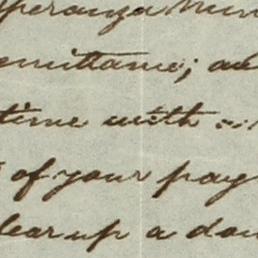 speranza Min
emittance; as
time with
of your pay
lear up a dou